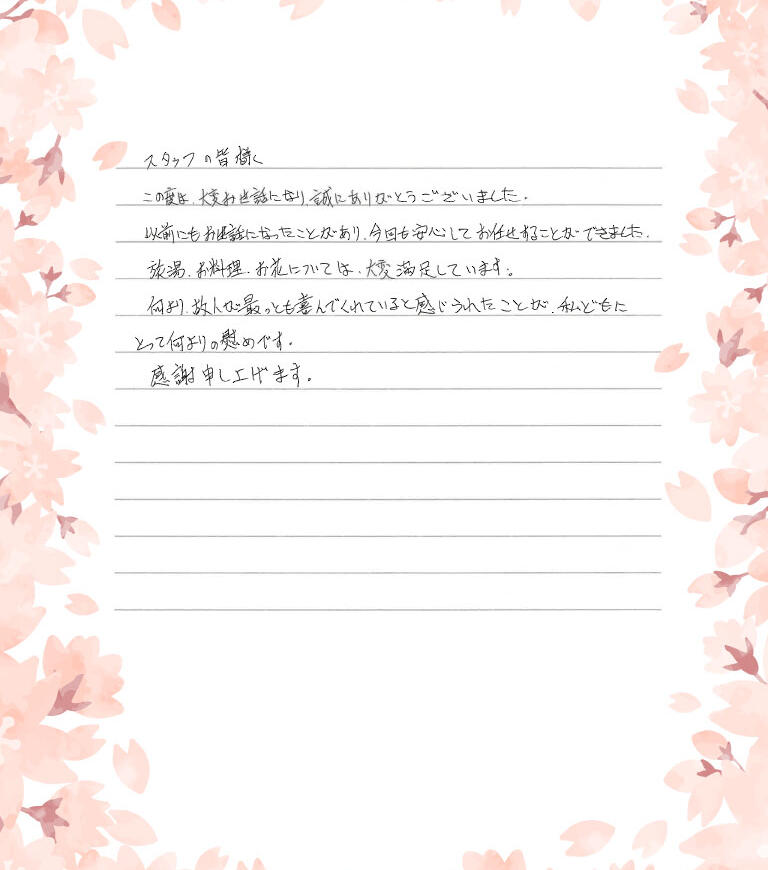 スタッフの皆様へ
この度は、大変お世話になり、誠にありがとうございました。
以前にもお世話になったことがあり、今回も安心してお任せすることができました。
放湯、お料理、お花については、大変満足しています。
何より、故人が最っとも喜んでくれていると感じられたことが、私どもに
とって何よりの慰めです。
感謝申し上げます。